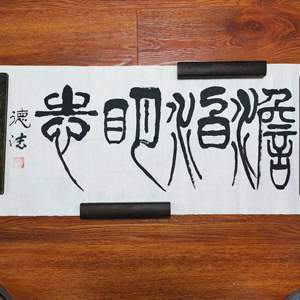 澹泊明志
德